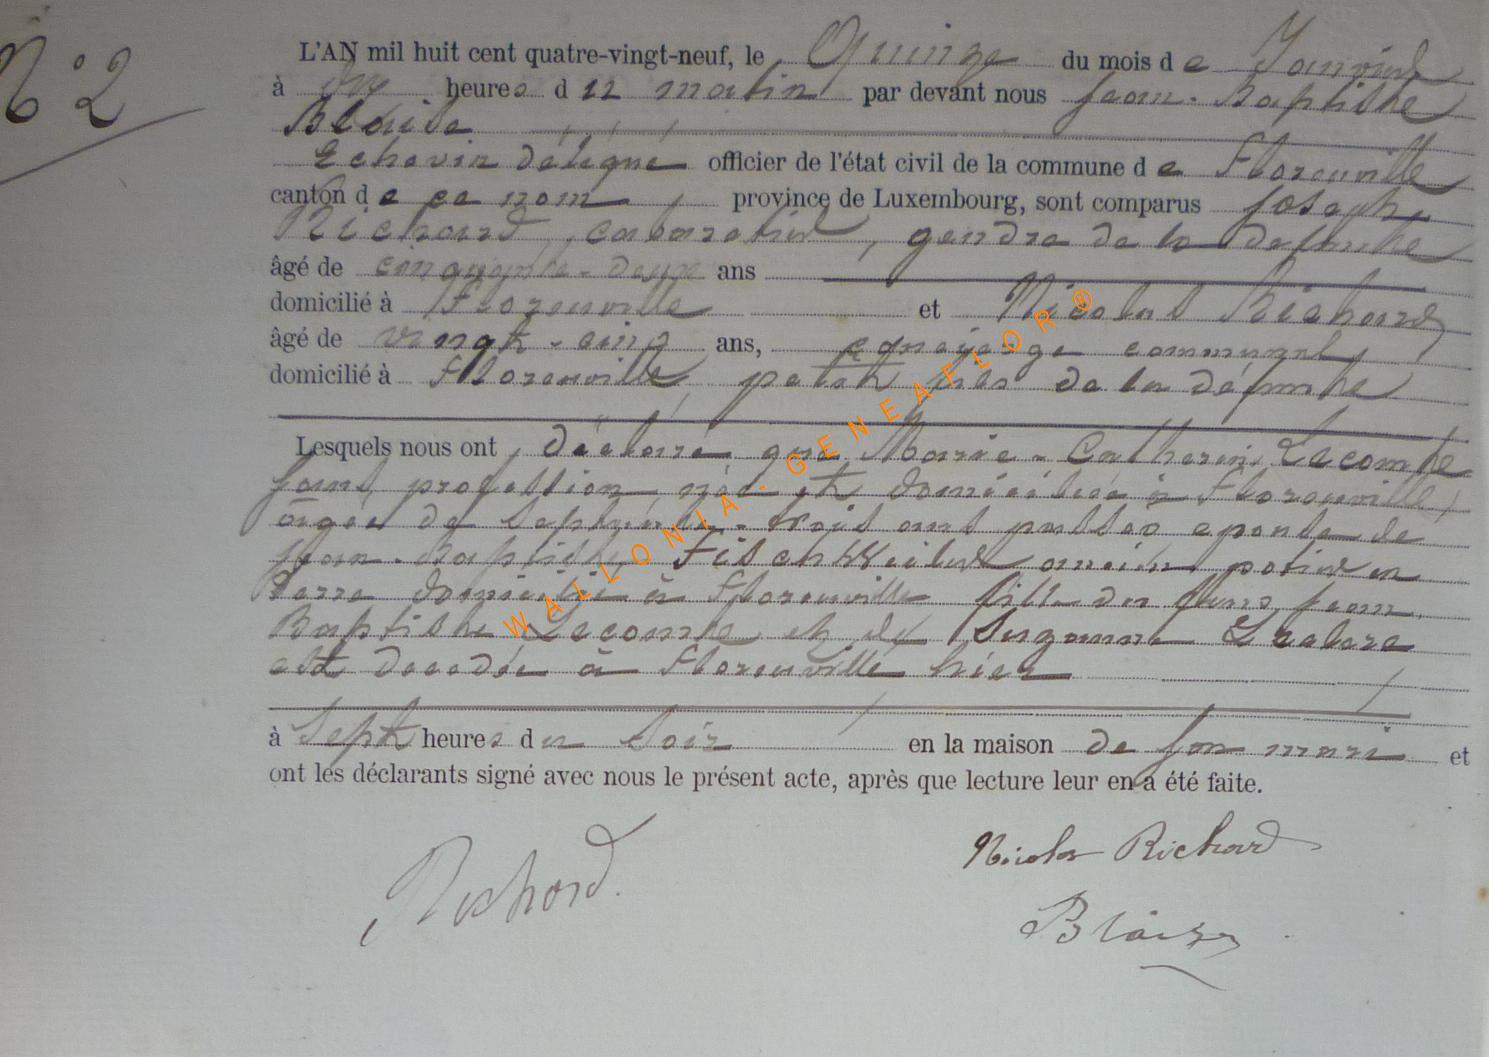 N° 2
L'AN mil huit cent quatre-vingt-neuf, le Quinze du mois de Janvier
à dix heures du matin par devant nous Jean-Baptiste
Blaise
Echevin délégué officier de l'état civil de la commune de Florenville
canton de ce nom province de Luxembourg, sont comparus Joseph
Richard, cabaretier, gendre de la defunte
âgé de cinquante-deux ans
domicilié à Florenville et Nicolas Richard
âgé de vingt-cinq ans, communal
domicilié à Florenville, petit fils de la défunte
Lesquels nous ont déclaré que Marie-Catherine Lecomte
sans profession née et domiciliée à Florenville,
agée de septante-trois ans passés epouse de
Jean-Baptiste Fisenweiler ancien potier en
terre domicilié à Florenville fille des feus Jean
Baptiste Lecomte et de Suzanne
est decedée à Florenville hier
à Sept heures du soir en la maison de son mari et
ont les déclarants signé avec nous le présent acte, après que lecture leur en a été faite.
Richard
Nicolas Richard
Blaise
WALLONIA-GENEAFLOR®